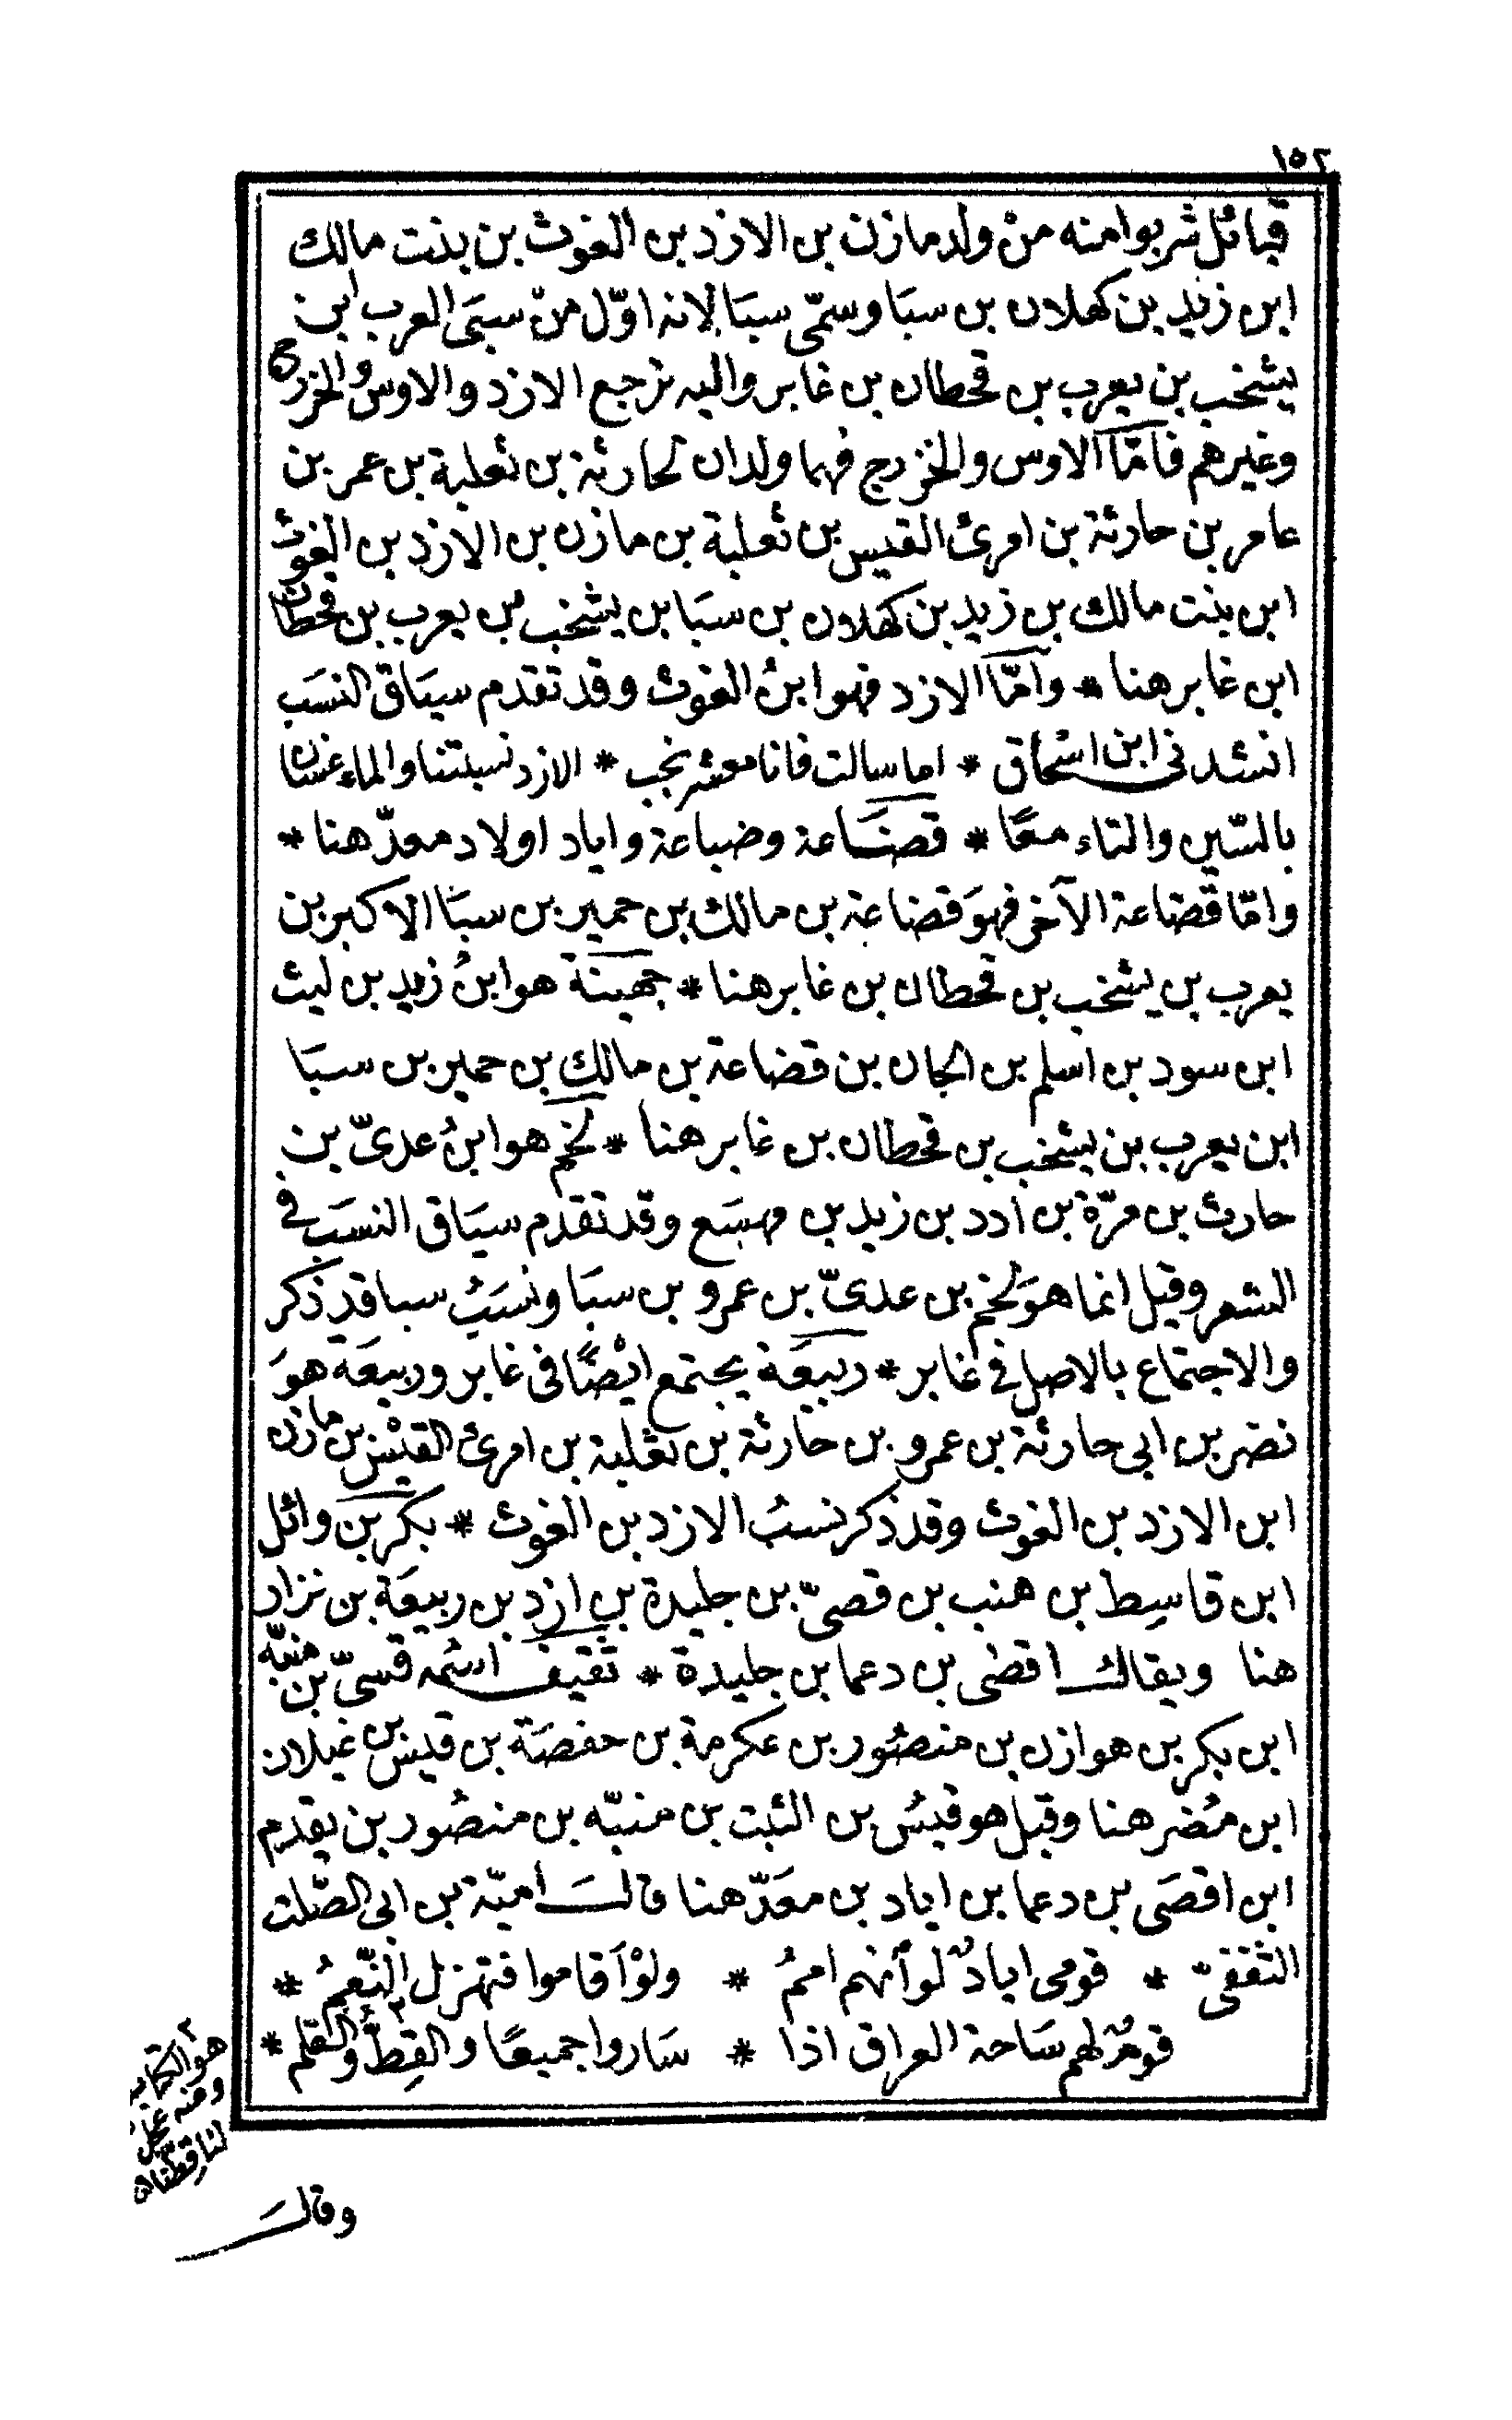 ١٥٢
قبائل شربوا منه منْ ولد مازن بن الازد بن الغوث بن بنت مالك
ابن زيد بن كهلان بن سبَا وسمّى سبَا لانه اوّل منْ سبَى العرب ابن
يشخب بن يعرب بن قحطان بن غابر واليه ترجع الازد والاوس والخزرج
وغيرهم فامّا الاوس والخزرج فهما ولدان لحارثة بن ثعلبة بن عمر بن
عامر بن حارثة بن امرئ القيس بن ثعلبة بن مازن بن الازد بن الغوث
ابن بنت مالك بن زيد بن كهلان بن سبَا بن يشخب بن يعرب بن قحطان
ابن غابر هنا * وامّا الازد فهوا ابنُ الغوث وقد تقدم سيَاق النسَب
انشد فى ابن اسْحاق * اما سالت فانا معشر نجب * الازد نسبتنا والماء غسان
بالسّين والتاء معًا * قصنَاعة وضباعة واياد اولاد معدّ هنا *
وامّا قضاعة الآخر فهوَ قضاعة بن مالك بن حمير بن سبَا الاكبر بن
يعرب بن يشخب بن قحطان بن غابر هنا * جهينة هوابنُ زيد بن ليث
ابن سود بن اسلم بن الجان بن قضاعة بن مالك بن حمير بن سبَا
ابن يعرب بن يشخب بن قحطان بن غابر هنا * لخم هوابنُ عدىّ بن
حارث بن مرّة بن ادد بن زيد بن مهسَع وقد تقدم سيَاق النسَب فى
الشعر وقيل انما هوَ لخم بن عدىّ بن عمرو بن سبَا ونسَبُ سبا قد ذكر
والاجتماع بالاصل فى غابر * ربيعَة يجتمع ايْضًا فى غابر وربيعَة هوَ
نضر بن ابى حارثة بن عمرو بن حارثة بن ثعلبة بن امرئ القيْس بن مازن
ابن الازد بن الغوث وقد ذكر نسبُ الازد بن الغوث * بكر بن وائل
ابن قاسِط بن هنب بن قصىّ بن جليدة بن ازد بن ربيعَة بن نزار
هنا ويقال اقصٰى بن دعما بن جليدة * ثقيف اسْمه قسىّ بن منبّه
ابن بكر بن هوازن بن منصُور بن عكرمة بن حفصَة بن قيس بن غيلان
ابن مُضر هنا وقيل هو قيسُ بن الثبت بن منبّه بن منصُور بن يقدم
ابن اقصَى بن دعما بن اياد بن معَدّ هنا قالَ اميّة بن ابى الصّلت
الثقفىّ * قومى ايادٌ لو أنهم اممُ * ولوْ اَقاموا فتهزل النّعمُ *
قومٌ لهم سَاحة العراق اذا * سَاروا جميعًا والقِطُّ والقلم *
٢
هو الكتاب
ومنه عجل
لنا قِطّنا
وقالَ